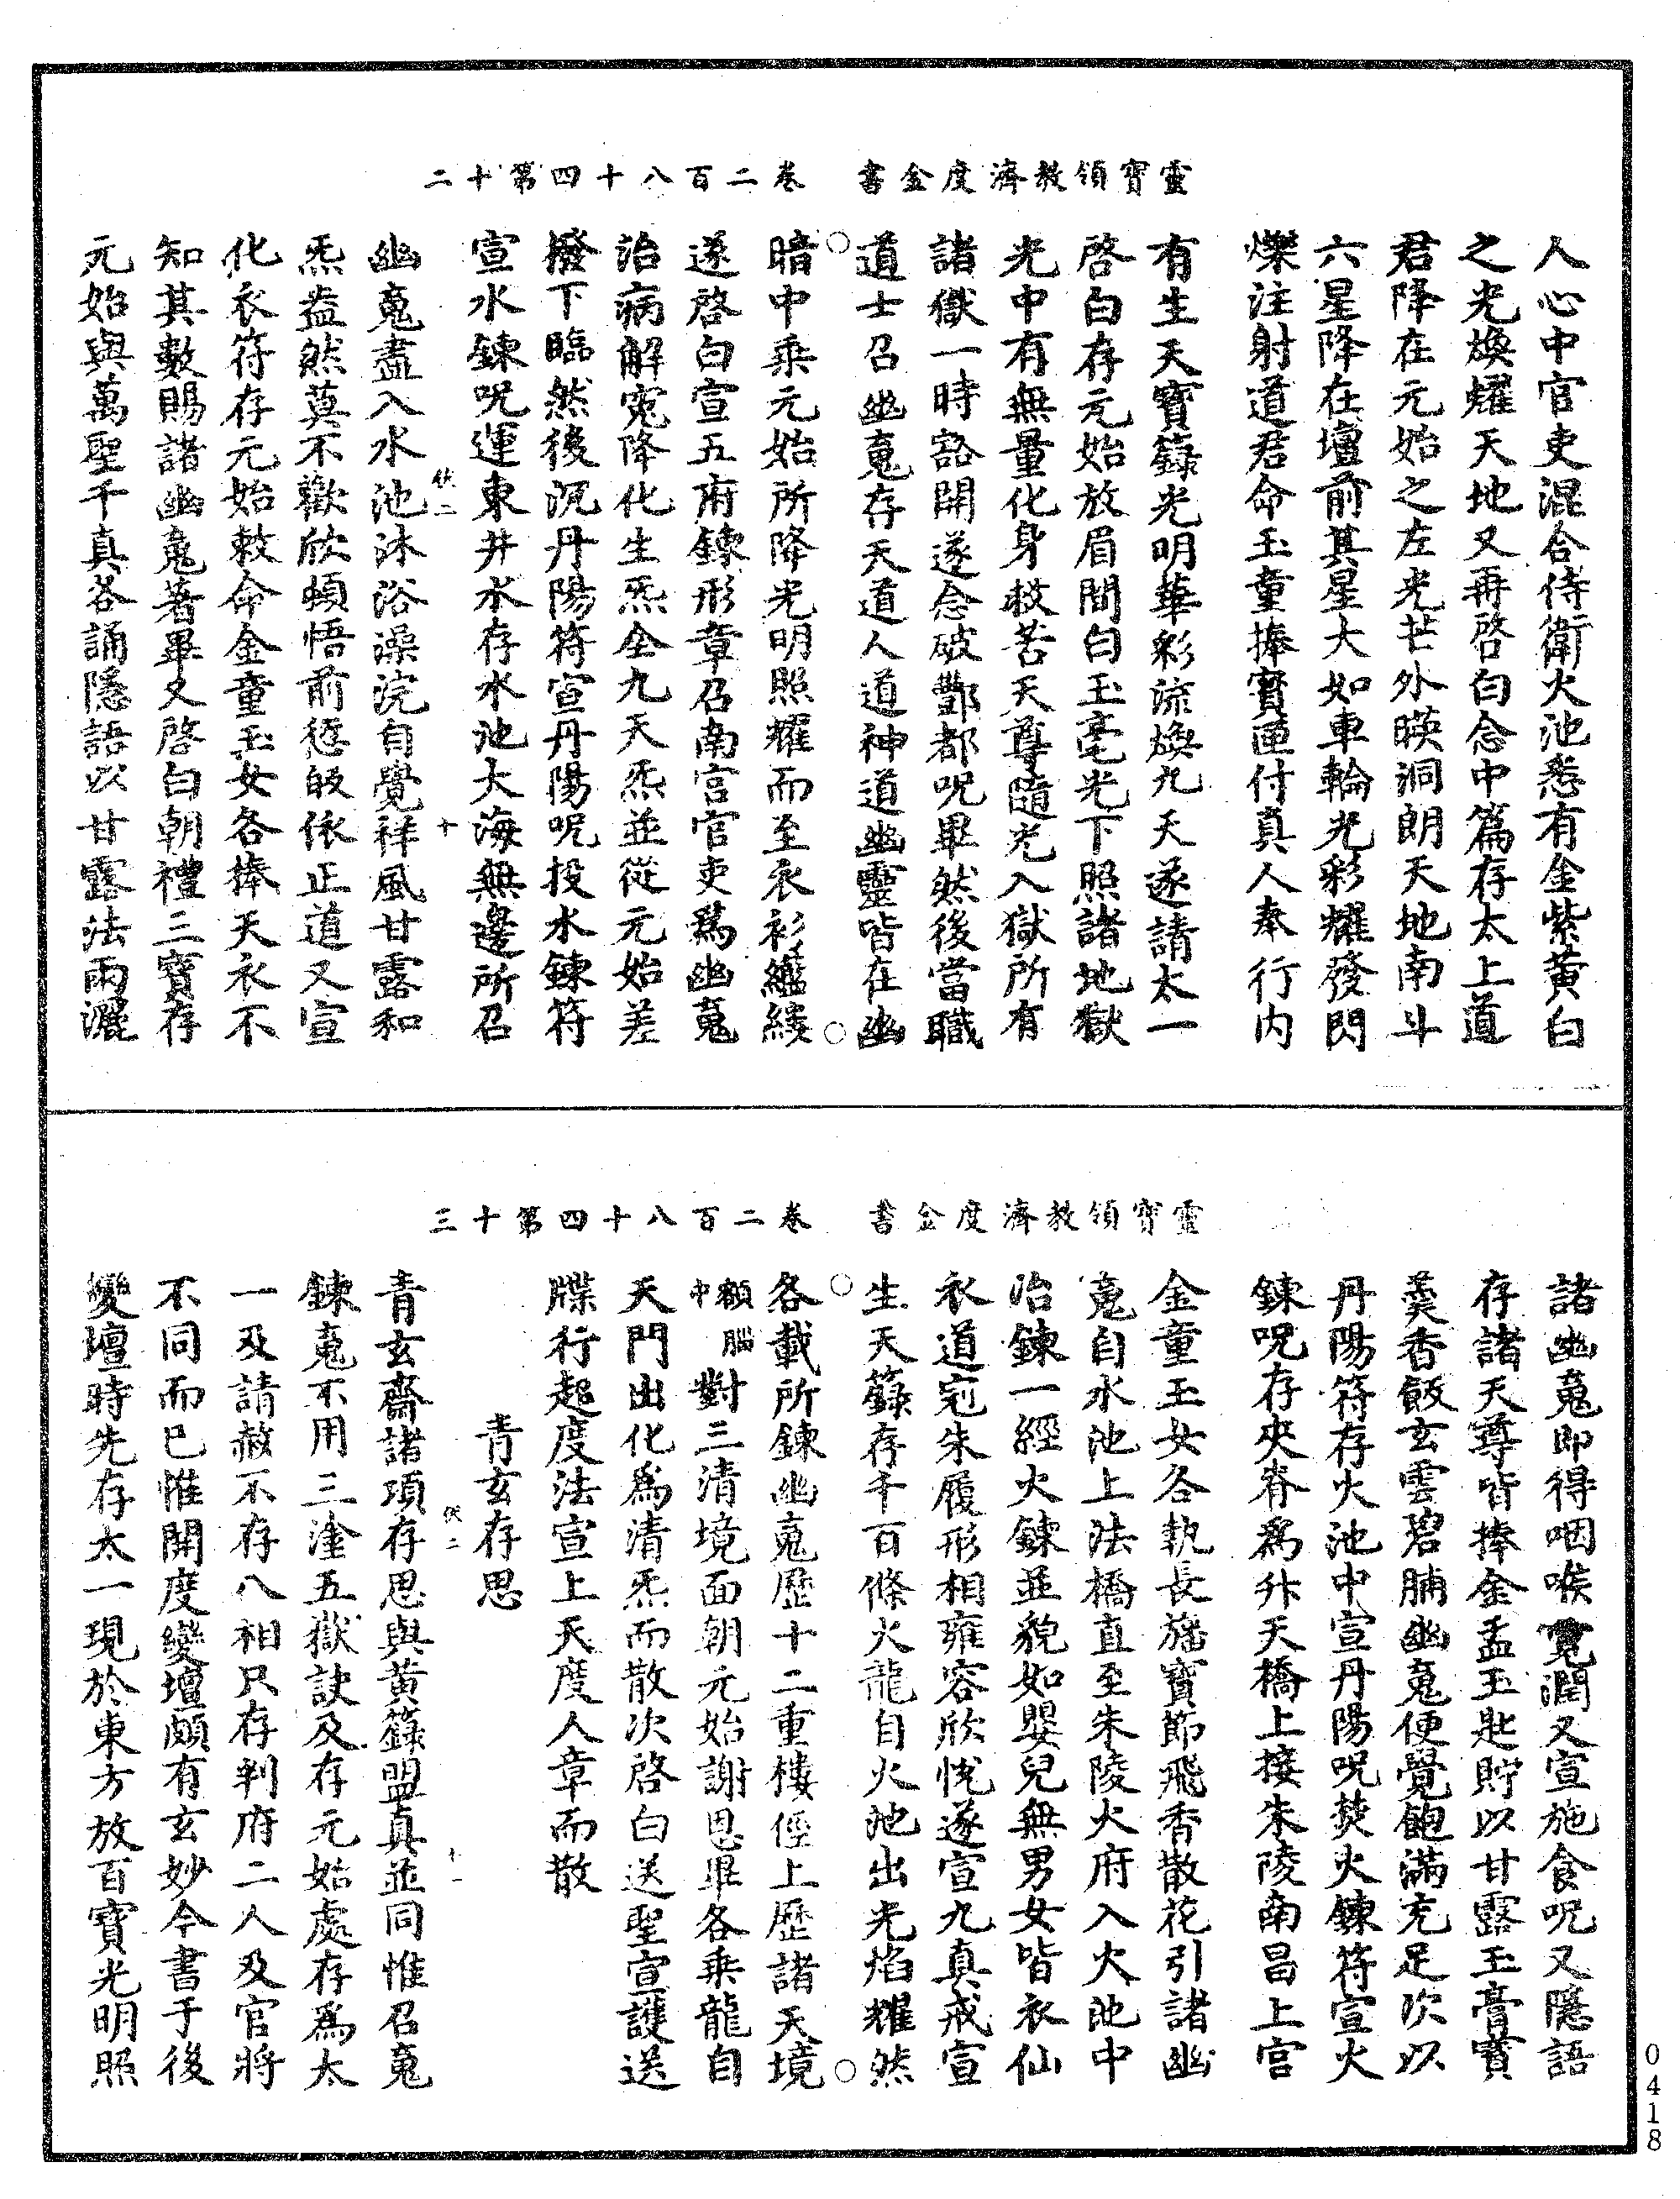 靈寶領教濟度金書　卷二百八十四第十二
人心中官吏混合侍衛火池悉有金紫黃白
之光煥耀天地又再啓白念中篇存太上道
君降在元始之左光芒外暎洞朗天地南斗
六星降在壇前其星大如車輪光彩耀發閃
爍注射道君命玉童捧寶匣付真人奉行內
有生天寶籙光明華彩流煥九天遂請太一
啓白存元始放眉間白玉毫光下照諸地獄
光中有無量化身救苦天尊隨光入獄所有
諸獄一時豁開遂念破酆都呪畢然後當職
道士召幽䰟存天道人道神道幽靈皆在幽
暗中乘元始所降光明照耀而至衣衫繿縷
遂啓白宣五府鍊形章召南宮官吏爲幽䰟
治病解寃降化生炁全九天炁並從元始差
撥下臨然後沉丹陽符宣丹陽呪投水鍊符
宣水鍊呪運東井水存水池大海無邊所召
伏二　十
幽䰟盡入水池沐浴澡浣自覺祥風甘露和
炁盎然莫不歡欣頓悟前愆皈依正道又宣
化衣符存元始敕命金童玉女各捧天衣不
知其數賜諸幽䰟著畢又啓白朝禮三寶存
元始與萬聖千真各誦隱語以甘露法雨灑
靈寶領教濟度金書　卷二百八十四第十三
諸幽䰟即得咽喉寬潤又宣施食呪又隱語
存諸天尊皆捧金盂玉匙貯以甘露玉膏寶
羹香飯玄雲碧脯幽䰟便覺飽滿充足次以
丹陽符存火池中宣丹陽呪焚火鍊符宣火
鍊呪存夾脊爲升天橋上接朱陵南昌上宮
金童玉女各執長旛寶節飛香散花引諸幽
䰟自水池上法橋直至朱陵火府入火池中
冶鍊一經火鍊並貌如嬰兒無男女皆衣仙
衣道冠朱履形相雍容欣悅遂宣九真戒宣
生天籙存千百條火龍自火池出光焰耀然
各載所鍊幽䰟歷十二重樓徑上歷諸天境
顱腦中對三清境面朝元始謝恩畢各乘龍自
天門出化爲清炁而散次啓白送聖宣護送
牒行起度法宣上天度人章而散
青玄存思
伏二　十一
青玄齋諸項存思與黃籙盟真並同惟召䰟
鍊䰟不用三塗五獄訣及存元始處存爲太
一及請赦不存八相只存判府二人及官將
不同而已惟開度變壇頗有玄妙今書于後
變壇時先存太一現於東方放百寶光明照
0418